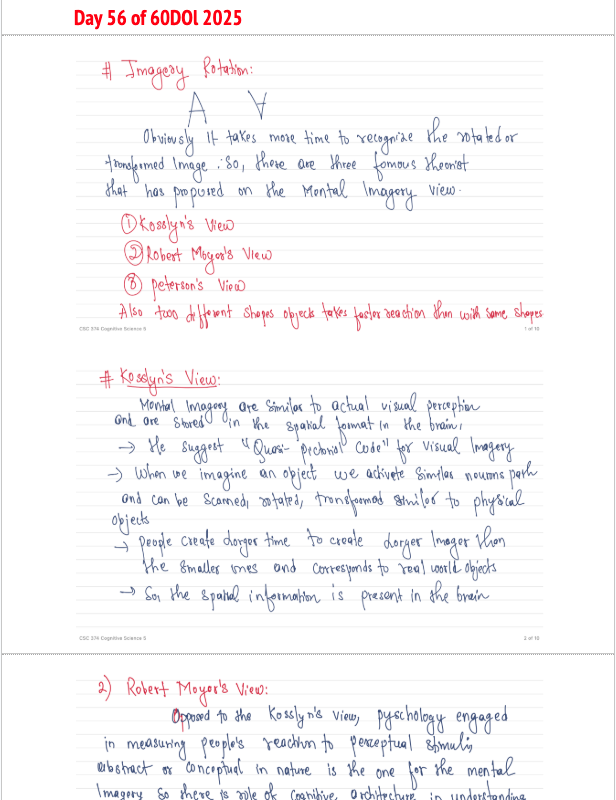 Day 56 of 60DOL 2025
# Imagery Rotation:
A ∀
Obviously It takes more time to recognize the rotated or
transformed Image. So, there are three famous theorist
that has proposed on the Mental Imagery view.
① Kosslyn's View
② Robert Moyer's View
③ Peterson's View
Also two different shapes objects takes faster reaction then with same shapes
CSC 374 Cognitive Science 5
1 of 10
# Kosslyn's View:
Mental Imagery are similar to actual visual perception
and are stored in the spatial format in the brain,
→ He suggest "Quasi-pictorial Code" for visual Imagery
→ When we imagine an object we activate similar neurons path
and can be scanned, rotated, transformed similar to physical
objects
→ people create larger time to create larger Images than
the smaller ones and corresponds to real world objects
→ So, the spatial information is present in the brain
CSC 374 Cognitive Science 5
2 of 10
2) Robert Moyer's View:
Opposed to the Kosslyn's view, pyschology engaged
in measuring people's reaction to perceptual stimulis
abstract or conceptual in nature is the one for the mental
Imagery So there is role of Cognitive architecture in understanding